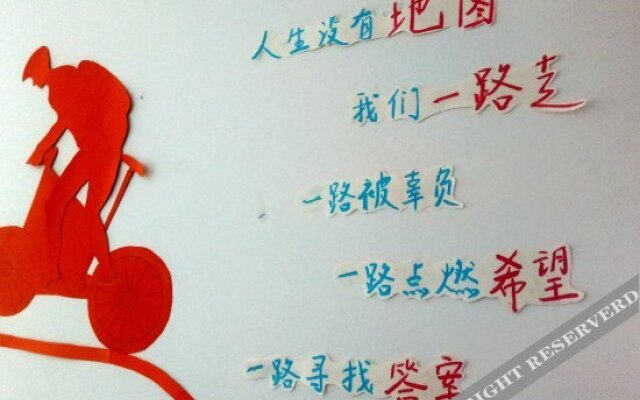 人生没有地图
我们一路走
一路被辜负
一路点燃希望
一路寻找答案
RIGHT RESERVERD